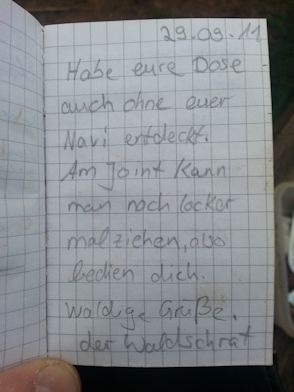 29.09.11
Habe eure Dose
auch ohne euer
Navi entdeckt.
Am Joint kann
man noch locker
mal ziehen, also
bedien dich.
Waldige Grüße,
der Waldschrat